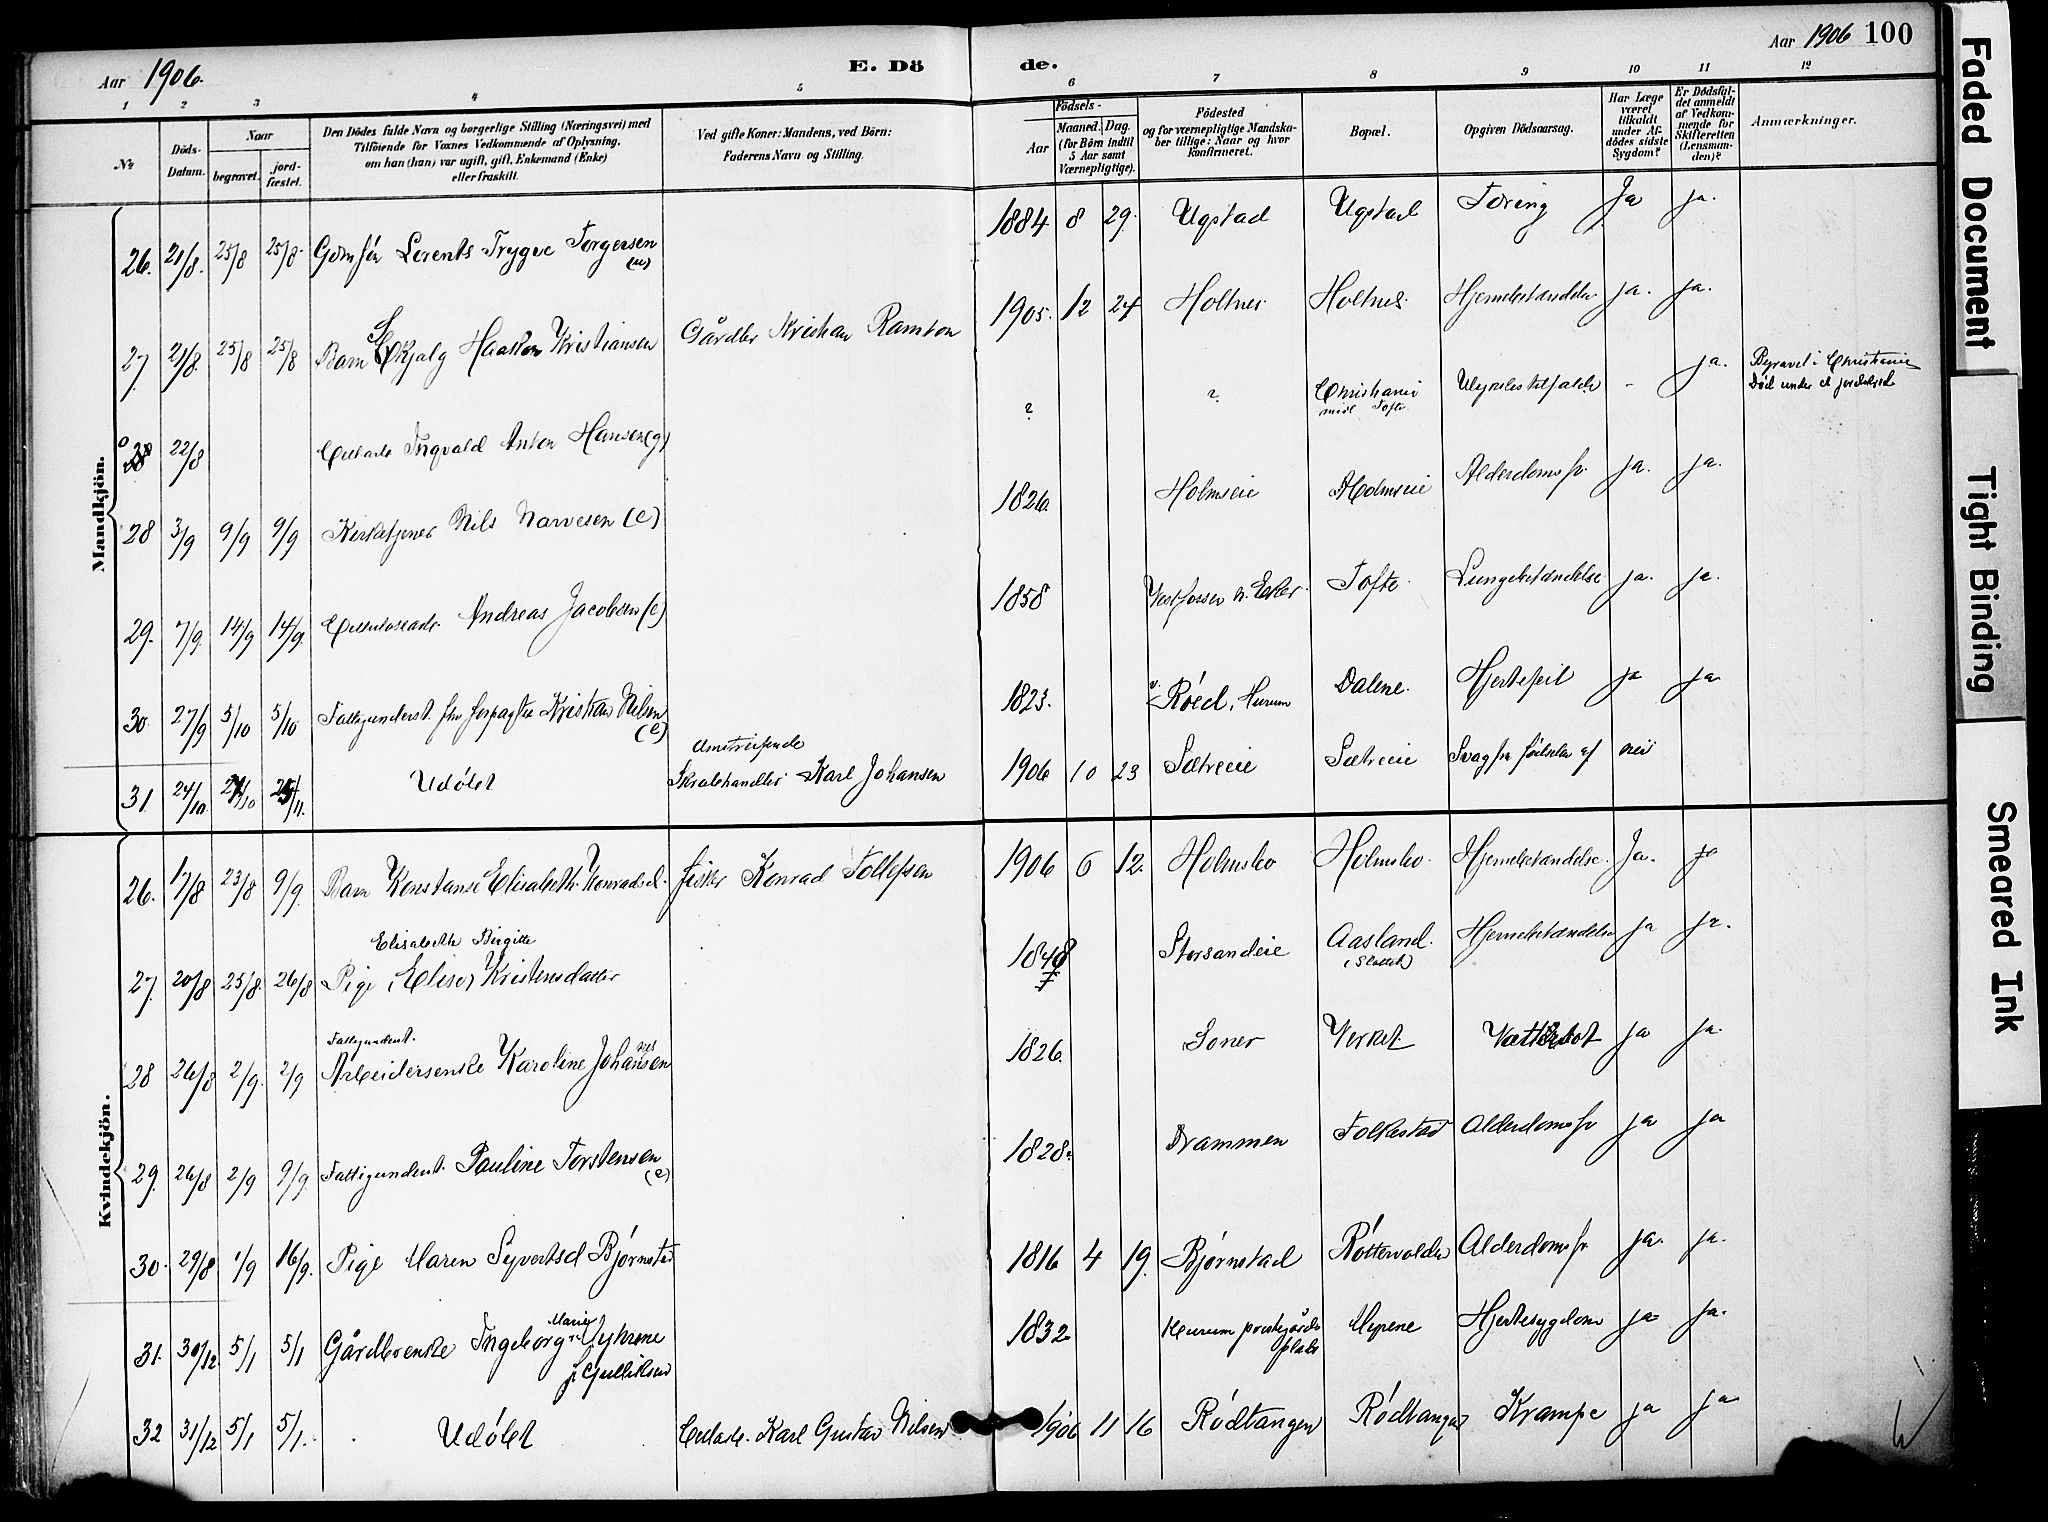 Aar 1906.
E. Dö
de.
Aar 1906
100
1 2 3 4 5 6 7 8 9 10 11 12
№
Döds-Datum.
Naar
begravet.
jord-fæstet.
Den Dödes fulde Navn og borgerlige Stilling (Næringsvei) med
Tilföiende for Voxnes Vedkommende af Oplysning,
om han (hun) var ugift, gift, Enkemand (Enke)
eller fraskilt.
Ved gifte Koner: Mandens, ved Börn:
Faderens Navn og Stilling.
Födsels-
Aar
Maaned. Dag.
(for Börn indtil
5 Aar samt
Værnepligtige).
Födested
og for værnepligtige Mandska-
ber tillige: Naar og hvor
konfirmeret.
Bopæl.
Opgiven Dödsaarsag.
Har Læge
været
tilkaldt
under Af-
dödes sidste
Sygdom?
Er Dödsfal-
det anmeldt
af Vedkom-
mende for
Skifteretten
(Lensman-
den)?
Anmærkninger.
Mandkjön.
26. 21/8. 25/8 25/8. Lorents Trygve Torgersen (u) 1884 8 29. Ugstad Ugstad Tæring Ja ja.
27. 21/8. 25/8 25/8 Barn Haakon Kristiansen Gårdbr Kristian Ramton 1905. 12 24 Holtnes Holtnes. Hjernebetændelse ja. ja.
28 22/8 Ingvald Anton Hansen (g) ? ? Christiania midl Tofte. Ulykkestilfælde - ja. Begravet i Christiania
Död under et jordskred
28 3/9 9/9 9/9 Kirketjener Nils Narvesen (e) 1826. Holmseie Holmseie Alderdomssv. ja. ja.
29. 7/9. 14/9 14/9. Celluloseårb. Andreas Jacobsen (e) 1858 Vestfossen Eker. Tofte. Lungebetændelse ja. ja.
30. 27/9 5/10 5/10 Fattigunderst. fhv forpagter Kristian Nilsen (e) 1823. Røed, Hurum Dalene. Hjertefeil ja ja
31. 24/10. Udøbt Omstreifende
Skrabehandler Karl Johansen 1906 10 23 Sætreeie Sætreeie Svag fra fødselen af nei
Kvindekjön.
26. 17/8 23/8 9/9. Barn Konstanse Elisabeth Konradsd. fisker Konrad Tollefsen 1906 6 12. Holmsbo Holmsbo. Hjernebetændelse. Ja. ja
27. 20/8 25/8. 26/8 Elisabeth Birgitte
Pige (Elise) Kristensdatter 1848 Storsandeie Aasland. Hjernebetændelse ja ja.
28 26/8 2/9. 2/9 Fattigunderst.
Arbeidersenke Karoline Johansen 1826. Soner Verket. Vattersot ja ja.
29. 26/8 2/9 9/9. Fattigunderst. Pauline Torstensen (e) 1828. Drammen Folkestad Alderdomssv ja ja
30. 29/8 1/9 16/9. Pige Maren Syvertsd Bjørnstad 1816 4 19. Bjørnstad Alderdomssv. ja. ja.
31. 30/12 5/1 5/1 Gårdbrenke Ingeborg Marie
f. Gulliksen 1832 Hurum prestegårds
plads Myrene Hjertesygdom ja ja.
32 31/12 5/1 5/1. Udøbt Karl Gustav Nilsen 1906 11 16 Rödtangen Rödtangen Krampe ja ja
Faded Document
Tight Binding
Smeared Ink